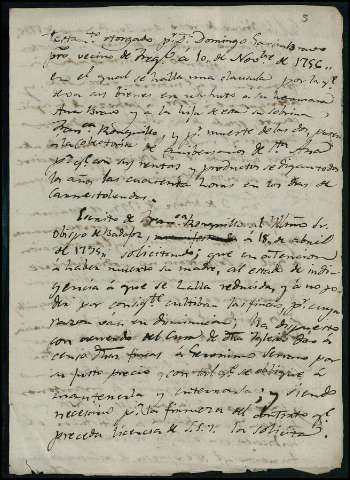 5
Testam.to otorgado p.r D.n Domingo Garcia Bravo
pro. vecino de Freg.l á 10,, de Nov.bre de 1756,,
en el qual se halla una clausula por la q.e
deja sus bienes en usufruto a su hermana
Ana Bravo y a la hija de esta su sobrina
Fran.ca Ronquillo, y p.r muerte de las dos, pasen
á la Colecturia de Aniversarios de S.ta Ana
p.a q.e con sus rentas y productos se digan todos
los años las cuarenta horas en los dias de
Carnestolendas.
Escrito de Fran.ca Ronquillo al Ill.mo Sr.
Obispo de Badajoz, á 18,, de Abril
de 1779,, solicitando; que en atencion
a haber muerto su madre, al estado de indi-
gencia á que se halla reducida, y á no po-
der por consig.te cultibar las fincas, p.r cuya
razon van en diminucion; ha dispuesto
con acuerdo del Cura de dha Iglesia dar á
censo dhas fincas a Geronimo Serrano por
su justo precio, con tal q.e se obligue á
mantenerla y , y siendo
necesario p.a la firmeza del contrato q.e
preceda licencia de S.S.Y. la solicita.